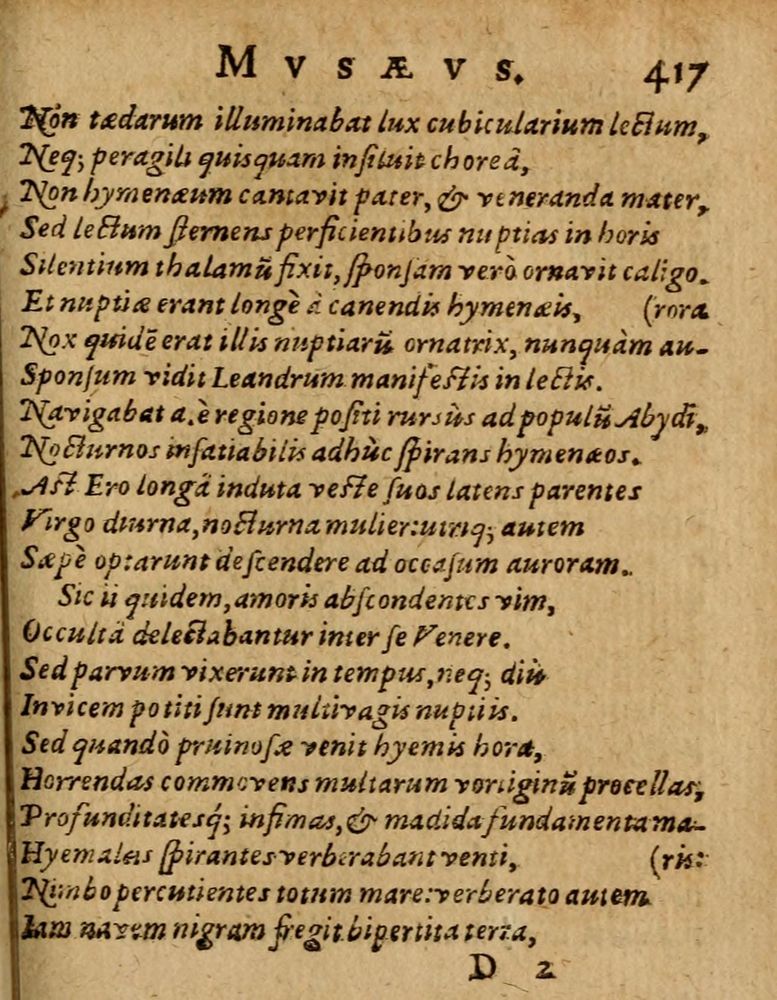 MVSÆVS. 417
Non tædarum illuminabat lux cubicularium lectum,
Neq; peragili quisquam insiluit choreâ,
Non hymenæum cantavit pater, & veneranda mater,
Sed lectum sternens perficientibus nuptias in horis
Silentium thalamũ fixit, sponsam verò ornavit caligo.
Et nuptiæ erant longè à canendis hymenæis, (rora
Nox quidẽ erat illis nuptiarũ ornatrix, nunquàm au-
Sponsum vidit Leandrum manifestis in lectis.
Navigabat a.è regione positi rursùs ad populũ Abydi,
Nocturnos insatiabilis adhùc spirans hymenæos.
Ast Ero longâ induta veste suos latens parentes
Virgo diurna, nocturna mulier: utriq; autem
Sæpè optarunt descendere ad occasum auroram.
Sic ii quidem, amoris abscondentes vim,
Occultâ delectabantur inter se Venere.
Sed parvum vixerunt in tempus, neq; diù
Invicem potiti sunt multivagis nuptiis.
Sed quandò pruinosæ venit hyemis hora,
Horrendas commovens multarum vortiginũ procellas,
Profunditatesq́; infimas, & madida fundamenta ma-
Hyemales spirantes verberabant venti, (ris:
Nimbo percutientes totum mare: verberato autem
Iam navem nigram fregit bipertita terra,
D 2